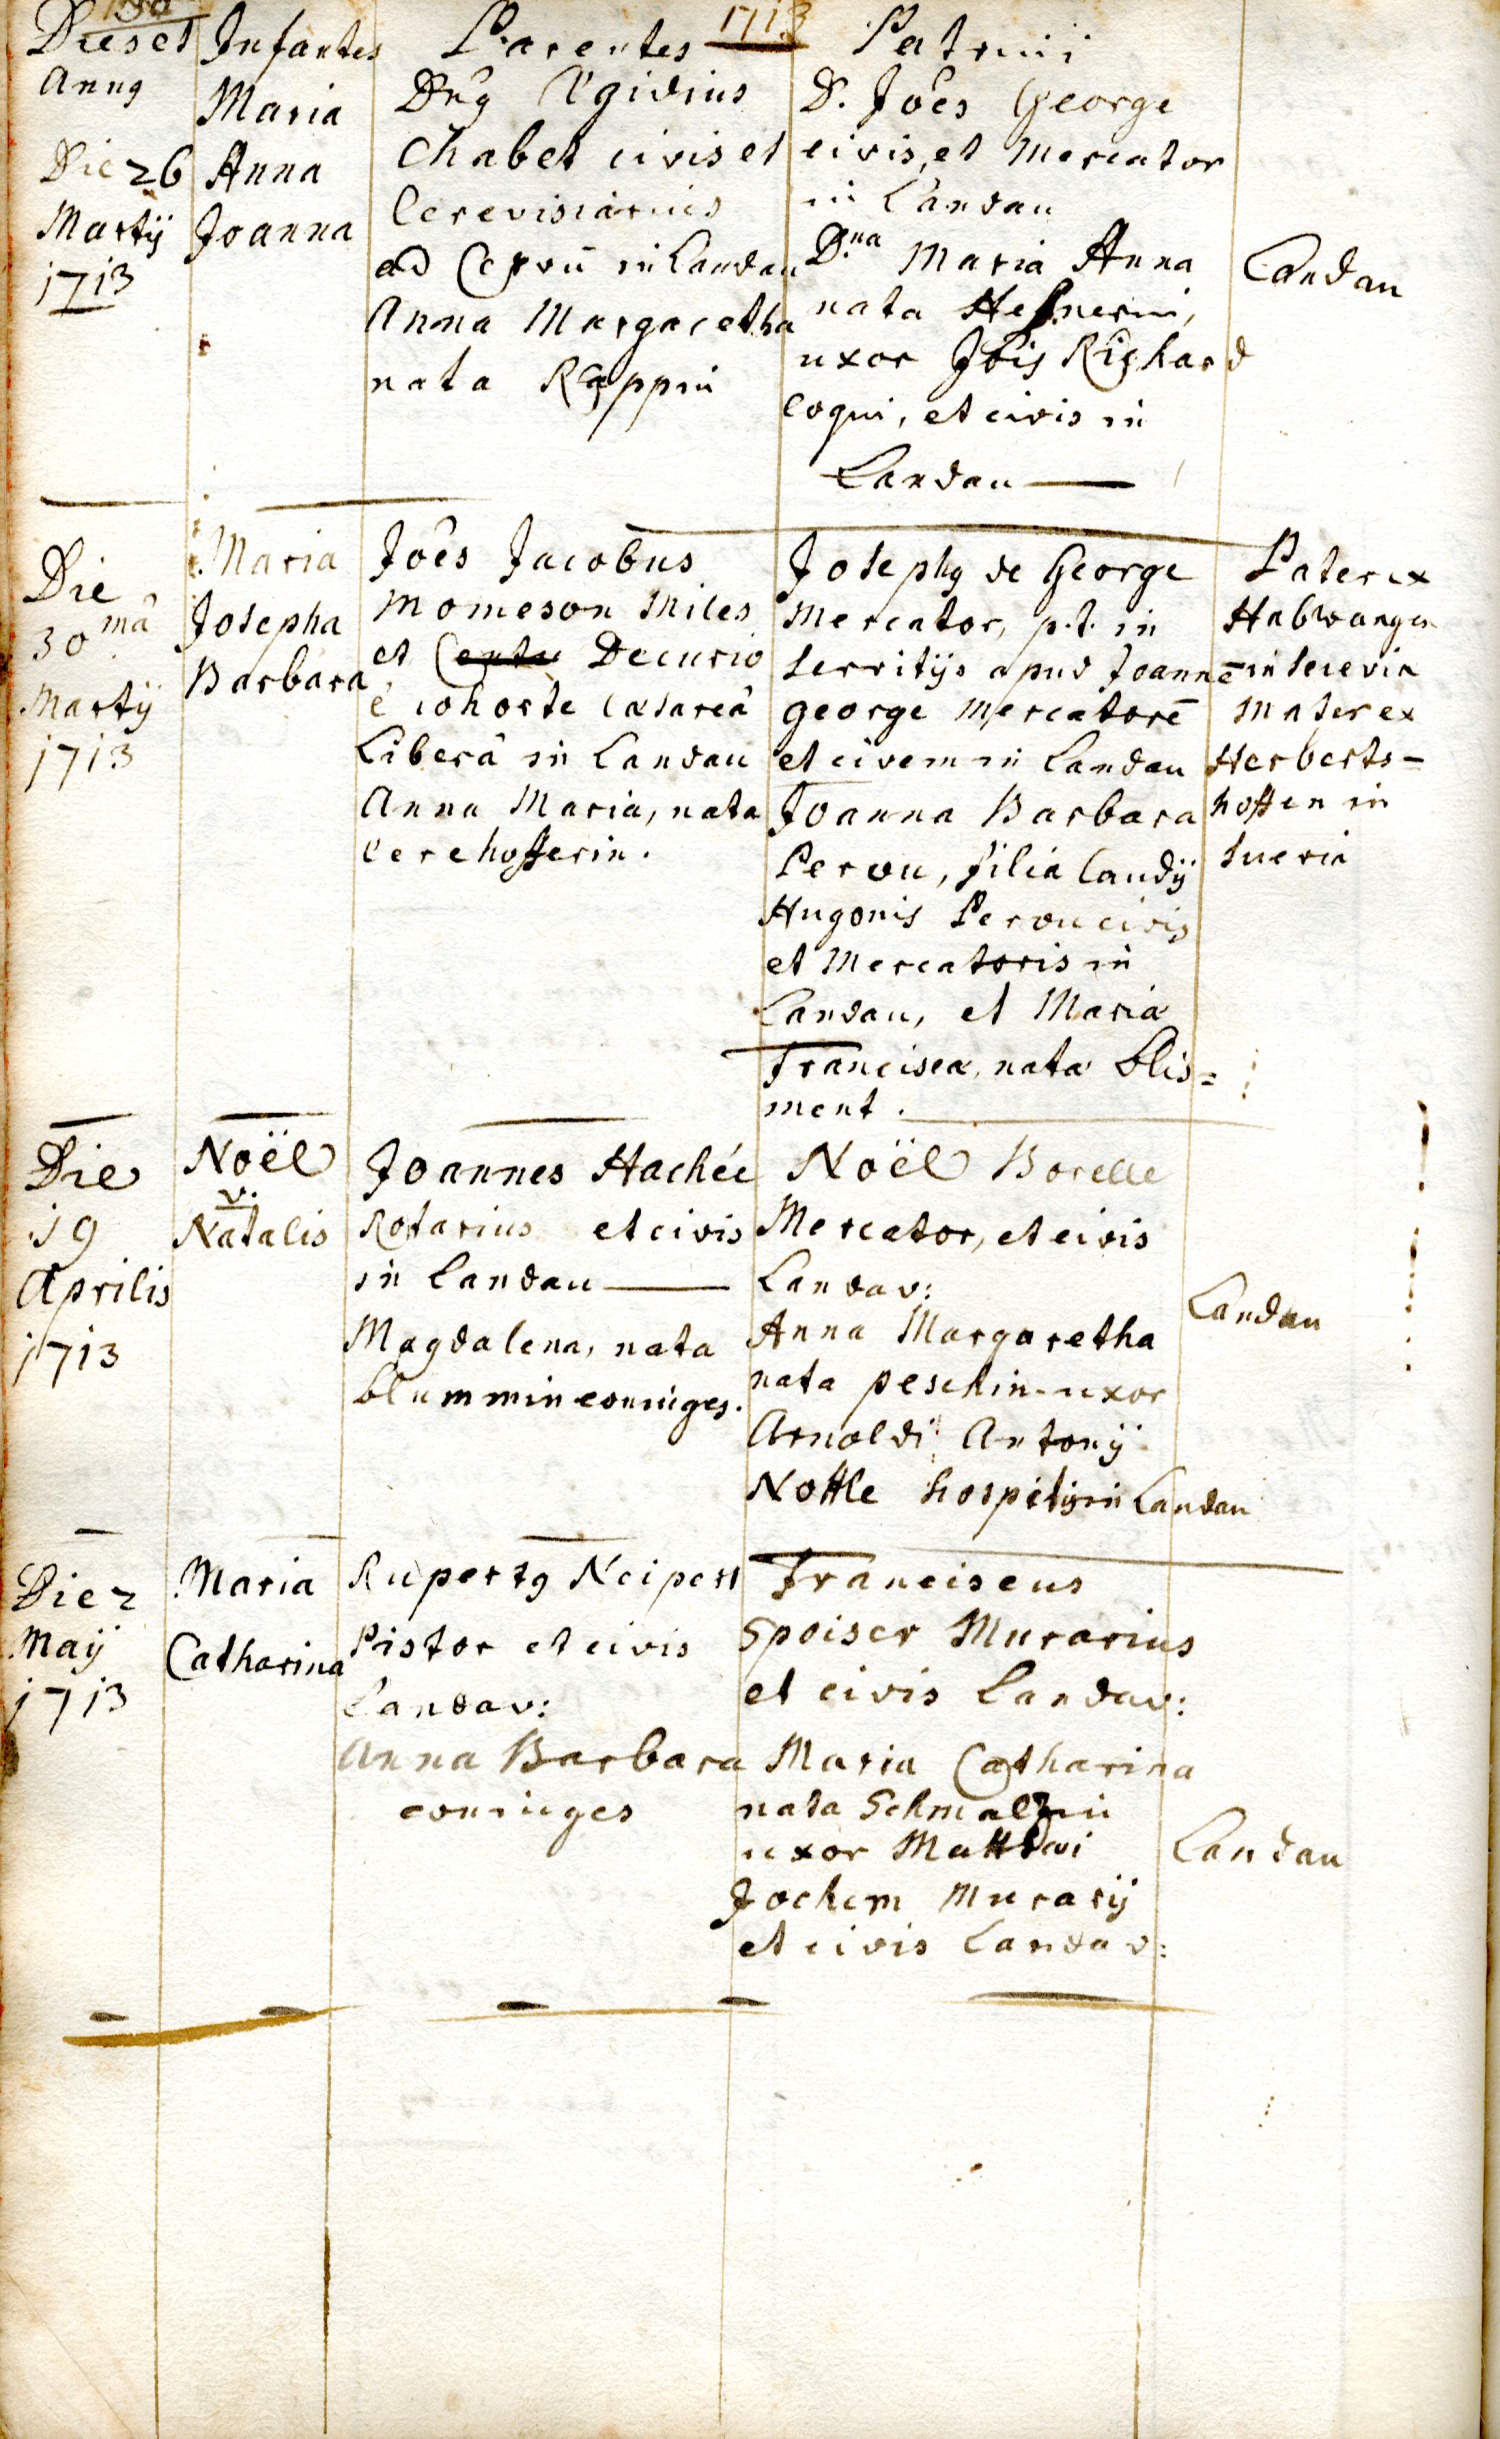 1713
Dies et
Annq
Infantes
Parentes
Patrini
Die 26
Martij
1713
Maria
Anna
Joanna
Dnq Ægidius
Chabet civis et
Cerevisiarius
ad Cervũ in Landau
Anna Margaretha
nata Rappin
D. Joês George
civis, et Mercator
in Landau
D.na Maria Anna
nata Heßnerin,
uxor Jois Righard
coqui, et civis in
Landau
Landau
Die
30mâ
Martij
1713
Maria
Josepha
Barbara
Joês Jacobus
Momeson Miles
et Centu Decurio
è cohorte Cæsareâ
Liberâ in Landau
Anna Maria, nata
Josephq de George
Mercator, p.t. in
servitijs apud Joannē
George Mercatorē
et civem in Landau
Joanna Barbara
Perou, filia Caudij
Hugonis Perou civis
et Mercatoris in
Landau, et Maria
Francisca, nata Blis=
ment.
Pater ex
Habwangen
in Suevia
Mater ex
Herberts=
hoffen in
Suevia
Die
19
Aprilis
1713
Noël
v.
Natalis
Joannes Hachée
Rotarius et civis
in Landau
Magdalena, nata
Blummin coniuges.
Noël Borelle
Mercator, et civis
Landav:
Anna Margaretha
nata Peschin uxor
Arnoldi Antonij
Nottle hospitis in Landau
Landau
Die 2
Maij
1713
Maria
Catharina
Rupertq Neipert
Pistor et civis
Landav:
Anna Barbara
coniuges
Franciscus
Speiser Murarius
et civis Landav:
Maria Catharina
nata Schmalzin
uxor Matthæi
Jochem Murarij
et civis Landav:
Landau